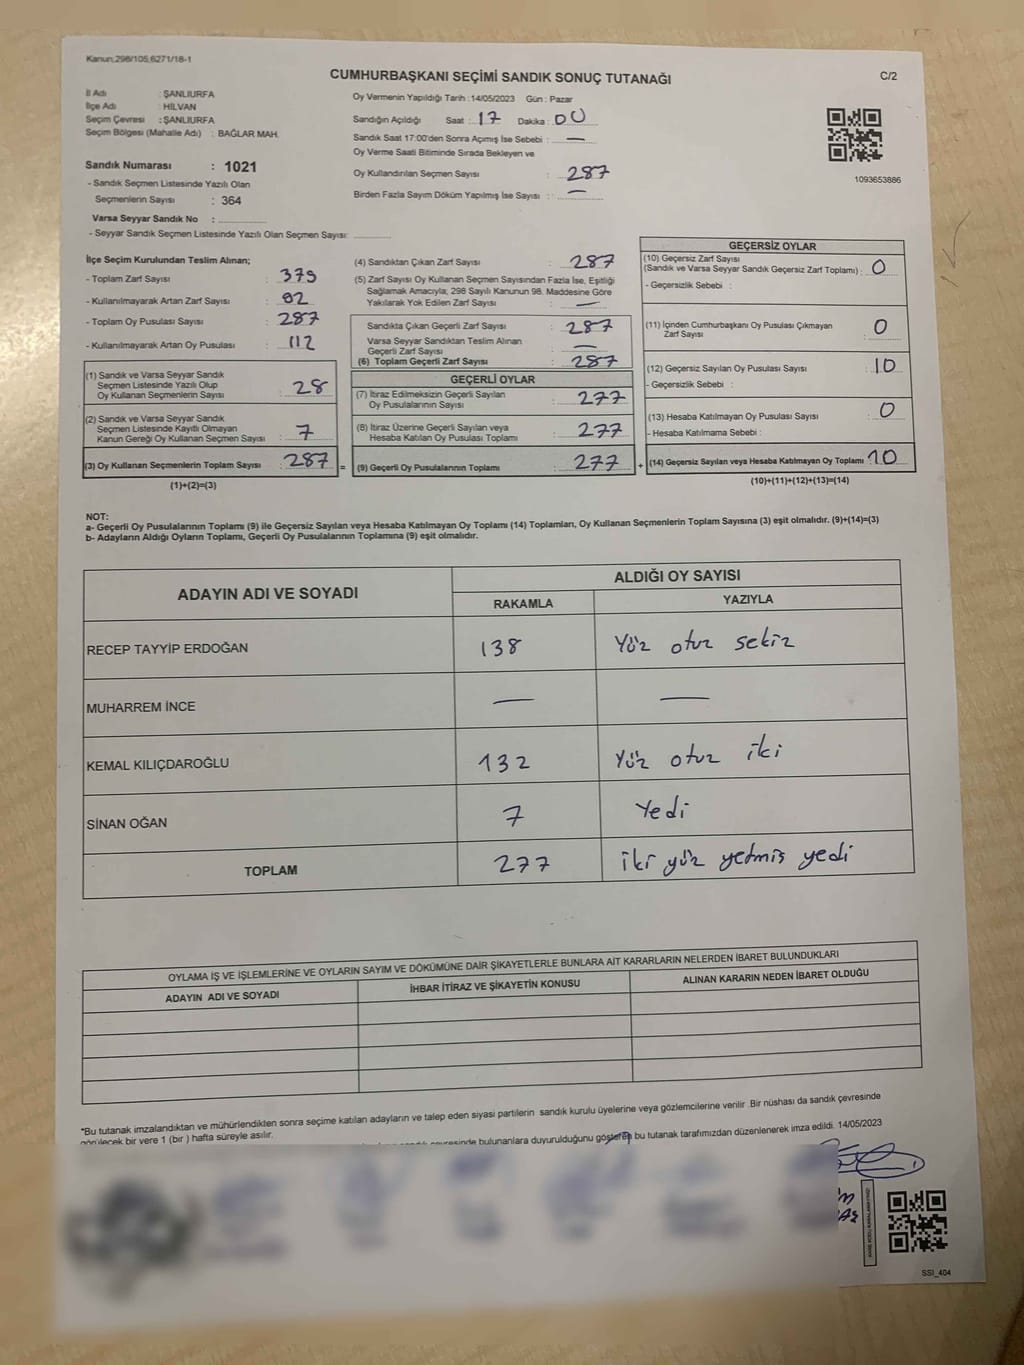 Kanun;298/105;6271/18-1
CUMHURBAŞKANI SEÇİMİ SANDIK SONUÇ TUTANAĞI
C/2
İl Adı : ŞANLIURFA
İlçe Adı : HİLVAN
Seçim Çevresi : ŞANLIURFA
Seçim Bölgesi (Mahalle Adı) : BAĞLAR MAH.
Sandık Numarası : 1021
- Sandık Seçmen Listesinde Yazılı Olan
Seçmenlerin Sayısı : 364
Varsa Seyyar Sandık No :
- Seyyar Sandık Seçmen Listesinde Yazılı Olan Seçmen Sayısı:
Oy Vermenin Yapıldığı Tarih :14/05/2023 Gün : Pazar
Sandığın Açıldığı Saat : 17 Dakika : 00
Sandık Saat 17:00'den Sonra Açımış İse Sebebi : —
Oy Verme Saati Bitiminde Sırada Bekleyen ve
Oy Kullandırılan Seçmen Sayısı : 287
Birden Fazla Sayım Döküm Yapılmış İse Sayısı : —
1093653886
İlçe Seçim Kurulundan Teslim Alınan;
- Toplam Zarf Sayısı : 379
- Kullanılmayarak Artan Zarf Sayısı : 92
- Toplam Oy Pusulası Sayısı : 287
- Kullanılmayarak Artan Oy Pusulası : 112
(1) Sandık ve Varsa Seyyar Sandık
Seçmen Listesinde Yazılı Olup
Oy Kullanan Seçmenlerin Sayısı : 28
(2) Sandık ve Varsa Seyyar Sandık
Seçmen Listesinde Kayıtlı Olmayan
Kanun Gereği Oy Kullanan Seçmen Sayısı : 7
(3) Oy Kullanan Seçmenlerin Toplam Sayısı : 287 =
(1)+(2)=(3)
(4) Sandıktan Çıkan Zarf Sayısı : 287
(5) Zarf Sayısı Oy Kullanan Seçmen Sayısından Fazla İse, Eşitliği
Sağlamak Amacıyla, 298 Sayılı Kanunun 98. Maddesine Göre
Yakılarak Yok Edilen Zarf Sayısı : —
Sandıkta Çıkan Geçerli Zarf Sayısı : 287
Varsa Seyyar Sandıktan Teslim Alınan
Geçerli Zarf Sayısı : —
(6) Toplam Geçerli Zarf Sayısı : 287
GEÇERLİ OYLAR
(7) İtiraz Edilmeksizin Geçerli Sayılan
Oy Pusulalarının Sayısı : 277
(8) İtiraz Üzerine Geçerli Sayılan veya
Hesaba Katılan Oy Pusulası Toplamı : 277
(9) Geçerli Oy Pusulalarının Toplamı : 277 +
GEÇERSİZ OYLAR
(10) Geçersiz Zarf Sayısı
(Sandık ve Varsa Seyyar Sandık Geçersiz Zarf Toplamı) : 0
- Geçersizlik Sebebi :
(11) İçinden Cumhurbaşkanı Oy Pusulası Çıkmayan
Zarf Sayısı : 0
(12) Geçersiz Sayılan Oy Pusulası Sayısı : 10
- Geçersizlik Sebebi :
(13) Hesaba Katılmayan Oy Pusulası Sayısı : 0
- Hesaba Katılmama Sebebi :
(14) Geçersiz Sayılan veya Hesaba Katılmayan Oy Toplamı 10
(10)+(11)+(12)+(13)=(14)
NOT:
a- Geçerli Oy Pusulalarının Toplamı (9) ile Geçersiz Sayılan veya Hesaba Katılmayan Oy Toplamı (14) Toplamları, Oy Kullanan Seçmenlerin Toplam Sayısına (3) eşit olmalıdır. (9)+(14)=(3)
b- Adayların Aldığı Oyların Toplamı, Geçerli Oy Pusulalarının Toplamına (9) eşit olmalıdır.
ADAYIN ADI VE SOYADI
ALDIĞI OY SAYISI
RAKAMLA YAZIYLA
RECEP TAYYİP ERDOĞAN 138 Yüz otuz sekiz
MUHARREM İNCE — —
KEMAL KILIÇDAROĞLU 132 Yüz otuz iki
SİNAN OĞAN 7 Yedi
TOPLAM 277 iki yüz yetmiş yedi
OYLAMA İŞ VE İŞLEMLERİNE VE OYLARIN SAYIM VE DÖKÜMÜNE DAİR ŞİKAYETLERLE BUNLARA AİT KARARLARIN NELERDEN İBARET BULUNDUKLARI
ADAYIN ADI VE SOYADI İHBAR İTİRAZ VE ŞİKAYETİN KONUSU ALINAN KARARIN NEDEN İBARET OLDUĞU
*Bu tutanak imzalandıktan ve mühürlendikten sonra seçime katılan adayların ve talep eden siyasi partilerin sandık kurulu üyelerine veya gözlemcilerine verilir .Bir nüshası da sandık çevresinde
görülecek bir yere 1 (bir ) hafta süreyle asılır.
bulunanlara duyurulduğunu gösteren bu tutanak tarafımızdan düzenlenerek imza edildi. 14/05/2023
SSI_404